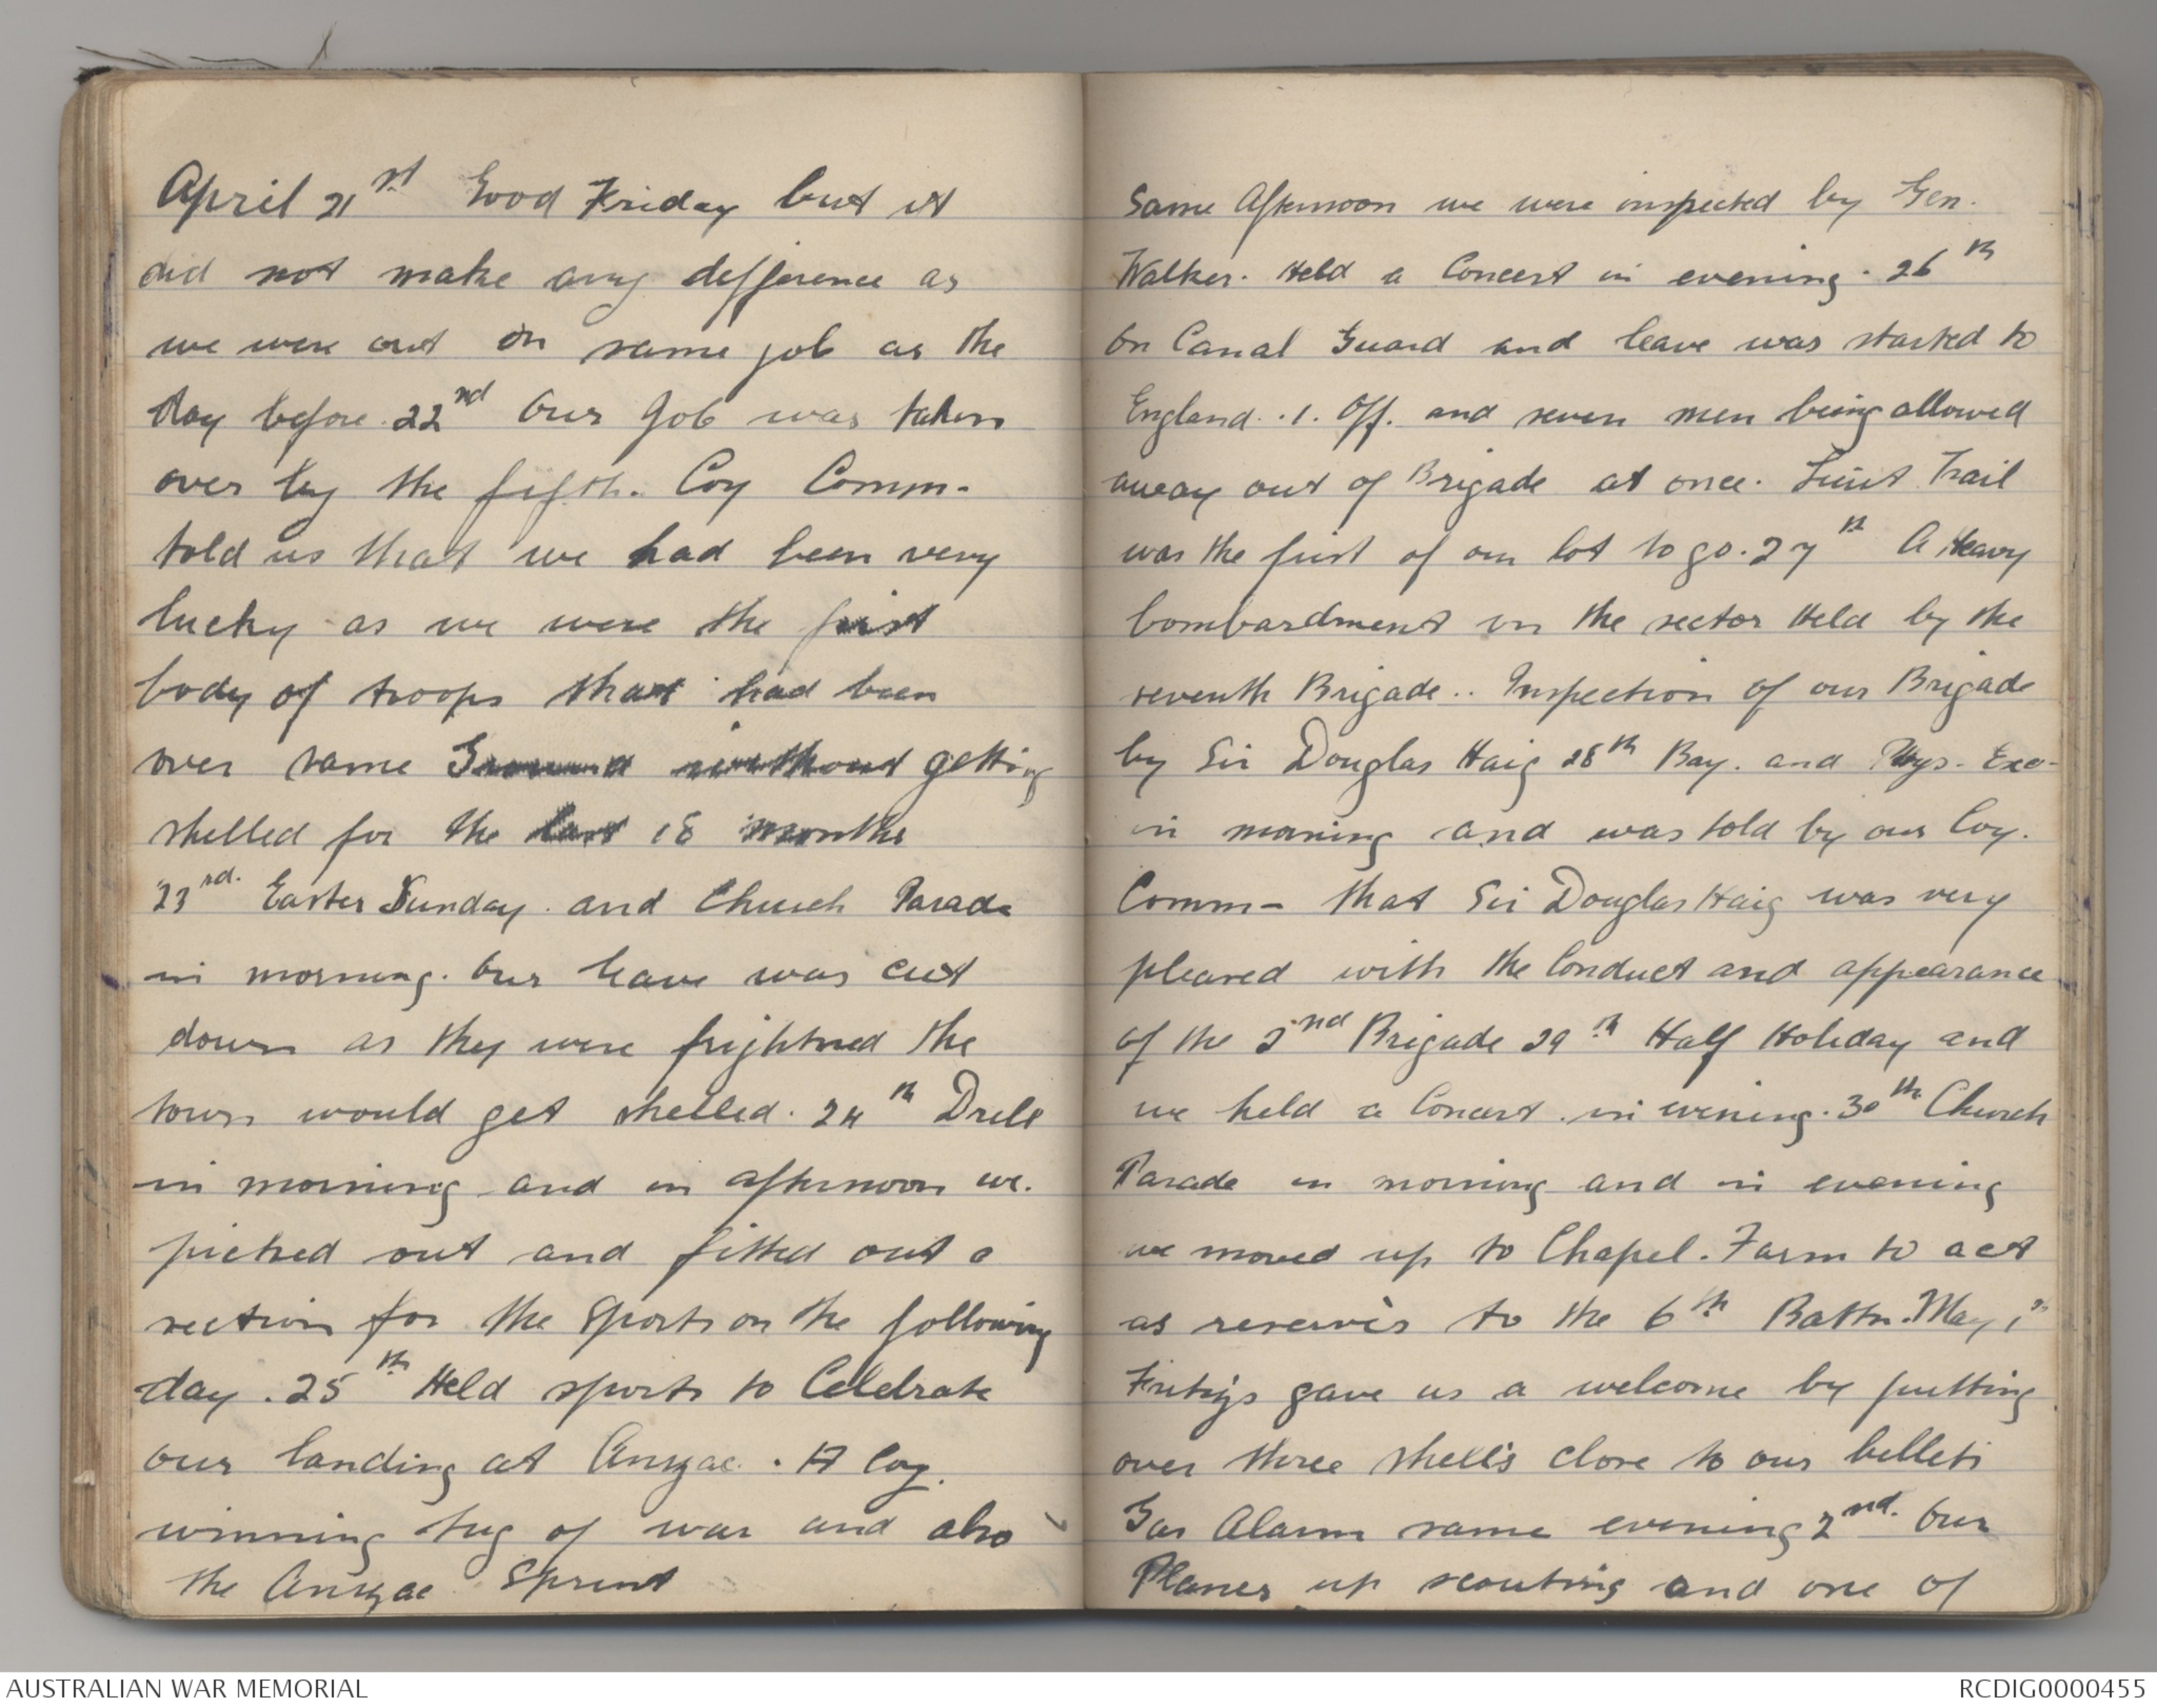 April 21st Good Friday but it
did not make any defference as
we were out on same job as the
day before. 22nd Our Job was taken
over by the fifth. Coy Comm-
told us that we had been very
lucky as we were the first
body of troops that had been
over same Ground without getting
shelled for the last 18 months
23rd. Easter Sunday. and Church Parade
in morning. Our leave was cut
down as they were frightned the
town would get shelled. 24th Drill
in morning and in afternoon we.
picked out and fitted out a
section for the Sports on the following
day. 25th Held sports to Celebrate
our landing at Anzac. Coy.
winning tug of war and also
the Anzac Sprint
Same Afternoon we were inspected by Gen.
Walker. Held a Concert in evening. 26th
On Canal Guard and leave was started to
England. .1. Off. and seven men being allowed
away out of Brigade at once. Lieut Trail
was the first of our lot to go. 27th A Heavy
bombardment on the sector Held by the
seventh Brigade.. Inspection of our Brigade
by Sir Douglas Haig 28th Bay. and Phys. Exe-
in morning and was told by our Coy.
Comm- that Sir Douglas Haig was very
pleased with the Conduct and appearance
of the 2nd Brigade 29th Half Holiday and
we held a Concert. in evening. 30th Church
Parade in morning and in evening
we moved up to Chapel. Farm to act
as reserves to the 6th Battn. May 1st
Fritzys gave us a welcome by putting
over three shells close to our billets
Gas Alarm same evening 2nd. Our
Planes up scouting and one of
AUSTRALIAN WAR MEMORIAL
RCDIG0000455